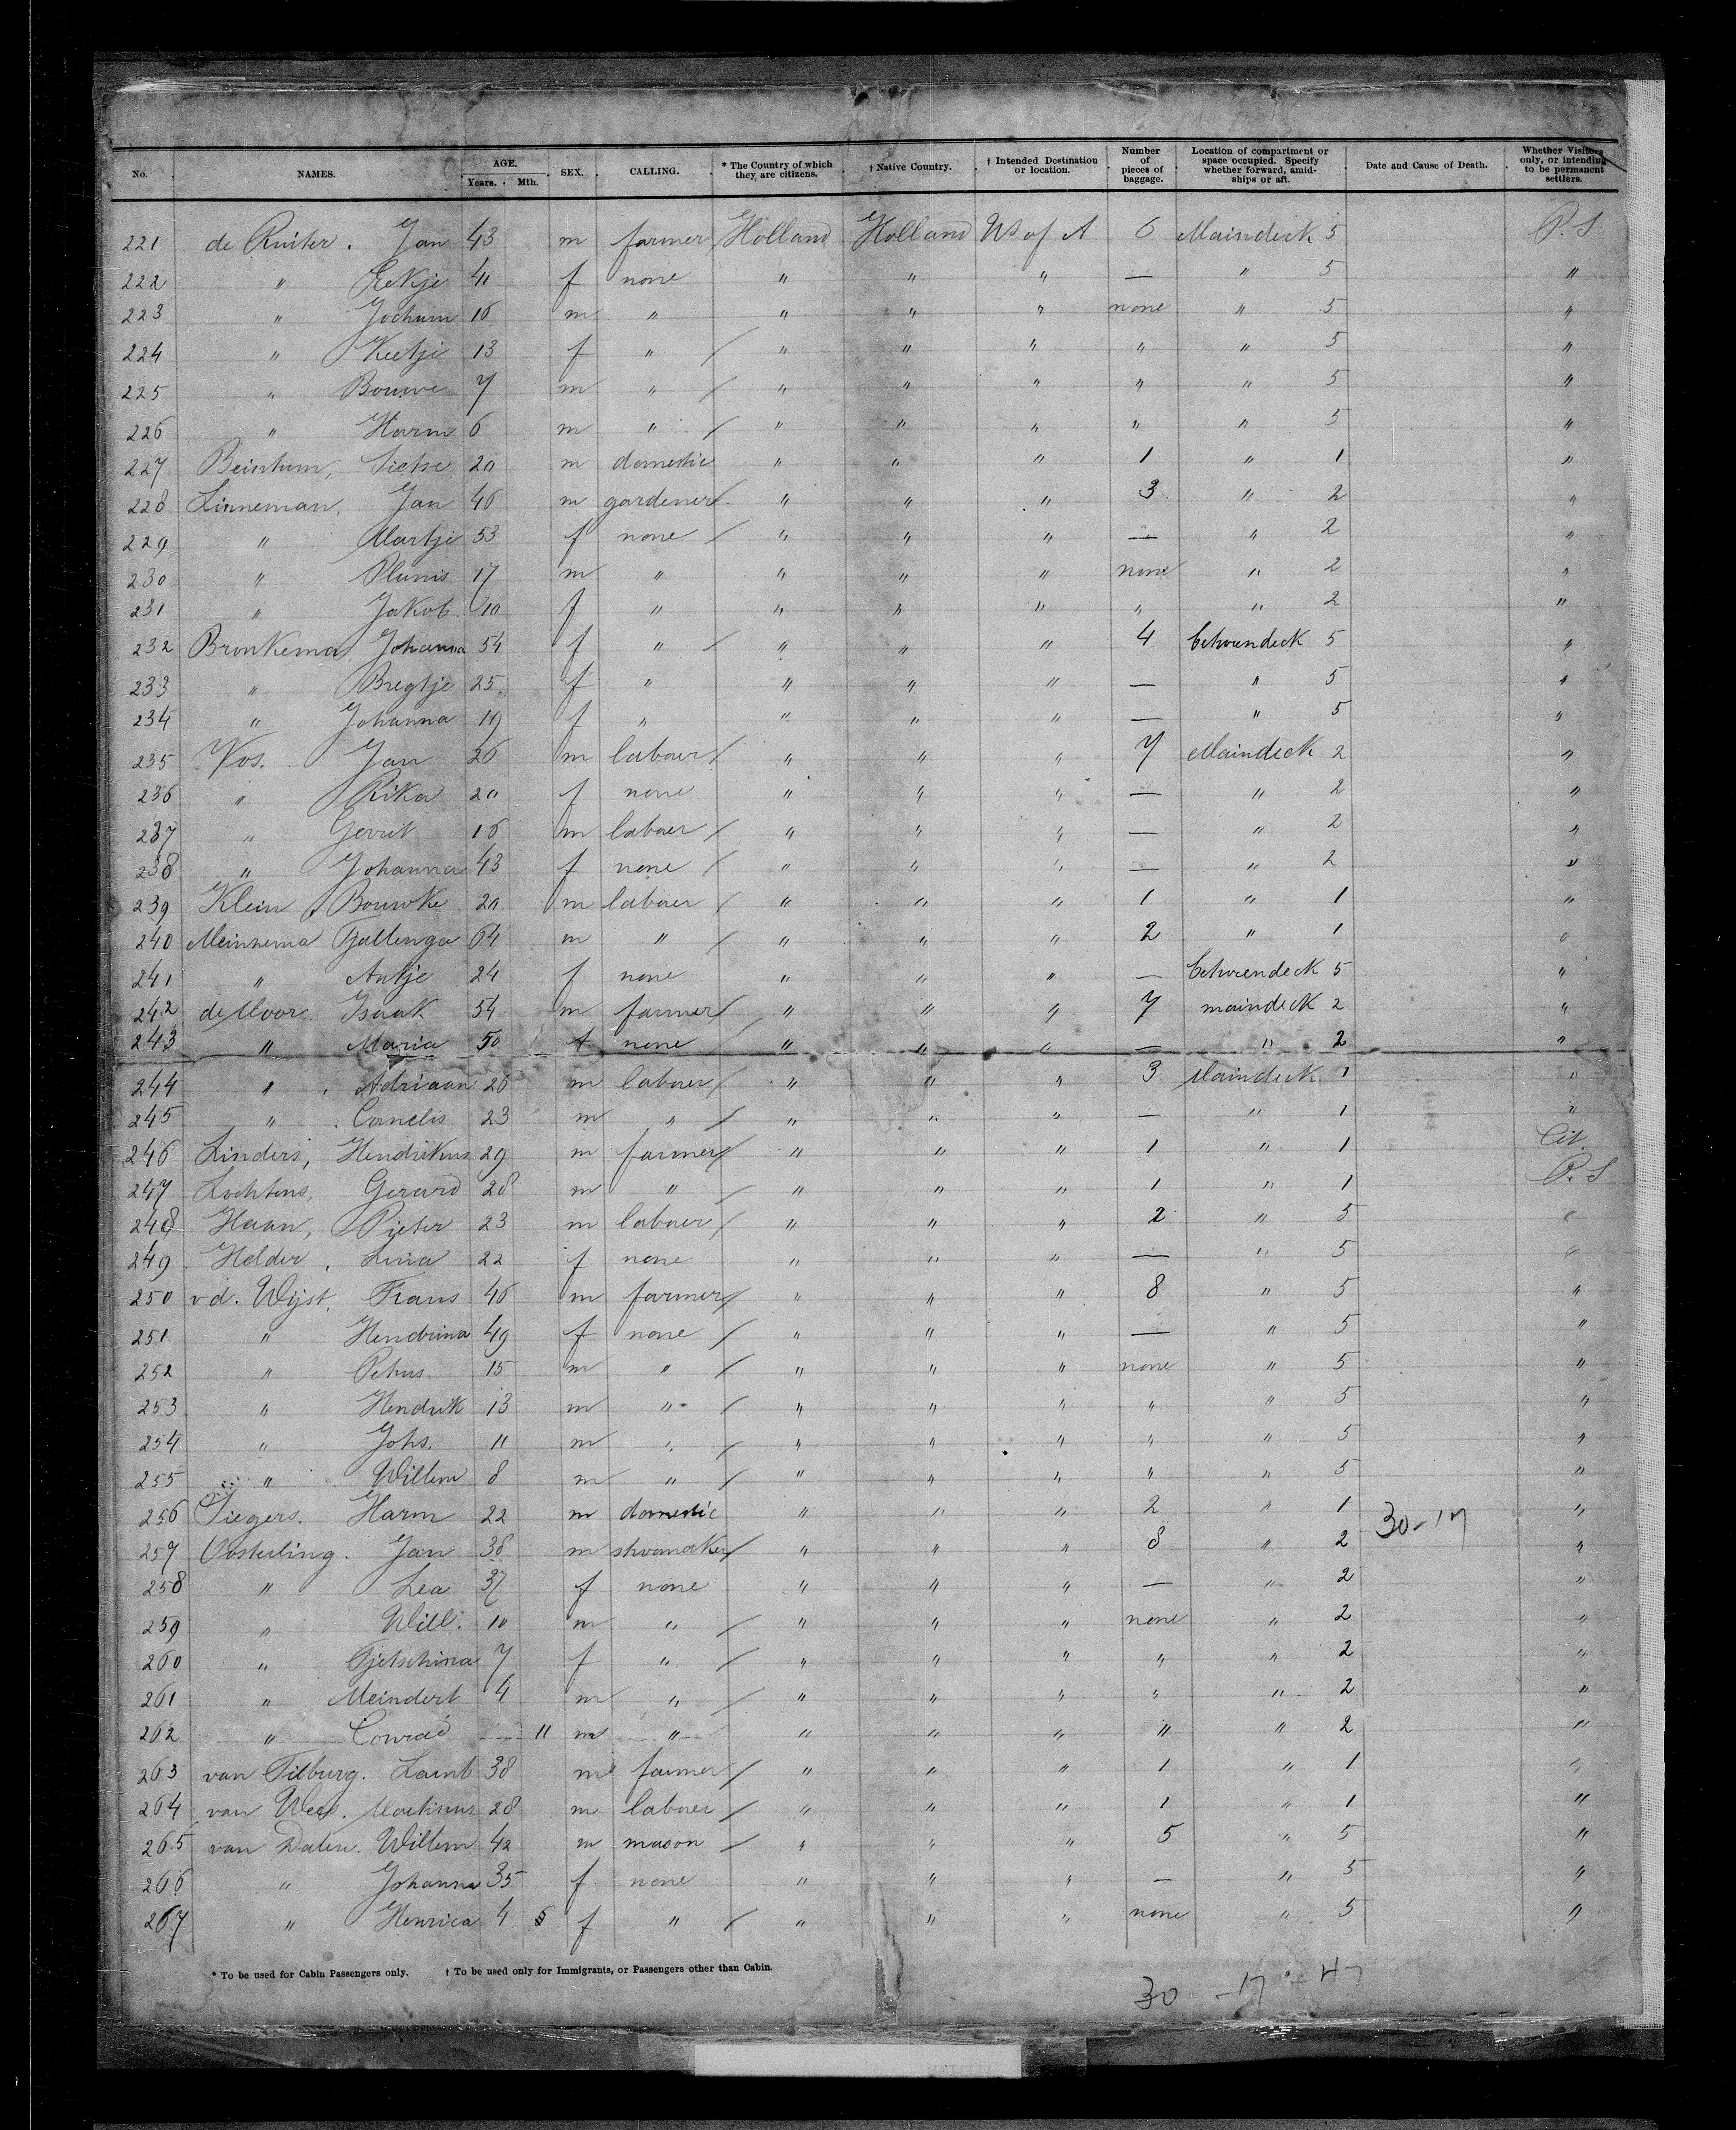 No. NAMES. AGE. Years. Mth. SEX. CALLING. * The Country of which they are citizens. † Native Country. † Intended Destination or location. Number of pieces of baggage. Location of compartment or space occupied. Specify whether forward, amidships or aft. Date and Cause of Death. Whether Visitors only, or intending to be permanent settlers.
221 de Ruiter. Jan 43 m farmer Holland Holland US of A 6 Maindeck 5 P.S
222 " 41 f none " " " — " 5 "
223 " Jochum 16 m " " " " none " 5 "
224 " Keetje 13 f " / " " " " " 5 "
225 " Bouwe 7 m " / " " " " " 5 "
226 " Harm 6 m " / " " " " " 5 "
227 Beintum, Sietse 20 m domestic " " " 1 " 1 "
228 Linneman, Jan 46 m gardener / " " " 3 " 2 "
229 " Martje 53 f none / " " " — " 2 "
230 " 17 m " " " " none " 2 "
231 " Jakob 10 f " " " " " " 2 "
232 Bronkema, Johanna 54 f " / " " " 4 betweendeck 5 "
233 " Bregtje 25 f " " " " — " 5 "
234 " Johanna 19 f " " " " — " 5 "
235 Vos. Jan 26 m laborer / " " " 7 Maindeck 2 "
236 " Rika 20 f none " " " — " 2 "
237 " Gerrit 16 m laborer / " " " — " 2 "
238 " Johanna 43 f none / " " " — " 2 "
239 Klein, Bouwke 20 m laborer / " " " 1 " 1 "
240 Meinnema Tjallenga 64 m " / " " " 2 " 1 "
241 " Antje 24 f none " " " — betweendeck 5 "
242 de Moor. Isaak 54 m farmer / " " " 7 maindeck 2 "
243 " Maria 50 f none / " " " — " 2 "
244 " Adriaan 26 m laborer / " " " 3 Maindeck 1 "
245 " Cornelis 23 m " / " " " — " 1 "
246 Linders, Hendrikus 29 m farmer / " " " 1 " 1 Cit
247 Lochtens, Gerard 28 m " / " " " 1 " 1 P.S
248 Haan, Pieter 23 m laborer / " " " 2 " 5 "
249 Helder, Lina 22 f none " " " — " 5 "
250 v d. Wijst, Frans 46 m farmer / " " " 8 " 5 "
251 " Hendrina 49 f none / " " " — " 5 "
252 " Petrus 15 m " / " " " none " 5 "
253 " Hendrik 13 m " / " " " " " 5 "
254 " Johs. 11 m " / " " " " " 5 "
255 " Willem 8 m " / " " " " " 5 "
256 Siegers. Harm 22 m domestic " " " 2 " 1 30-17 "
257 Oosterling. Jan 38 m shoemaker / " " " 8 " 2 "
258 " Lea 37 f none " " " — " 2 "
259 " Will. 10 m " / " " " none " 2 "
260 " Tjetschina 7 f " / " " " " " 2 "
261 " Meindert 4 m " / " " " " " 2 "
262 " Conrad — 11 m " " " " " " 2 "
263 van Tilburg. Lamb 38 m farmer / " " " 1 " 1 "
264 van Wees. Martinus 28 m laborer / " " " 1 " 1 "
265 van Dalen. Willem 42 m mason / " " " 5 " 5 "
266 " Johanna 35 f none " " " — " 5 "
267 " Henrica 4 f " / " " " none " 5 "
* To be used for Cabin Passengers only. † To be used only for Immigrants, or Passengers other than Cabin.
30 - 17 - 47